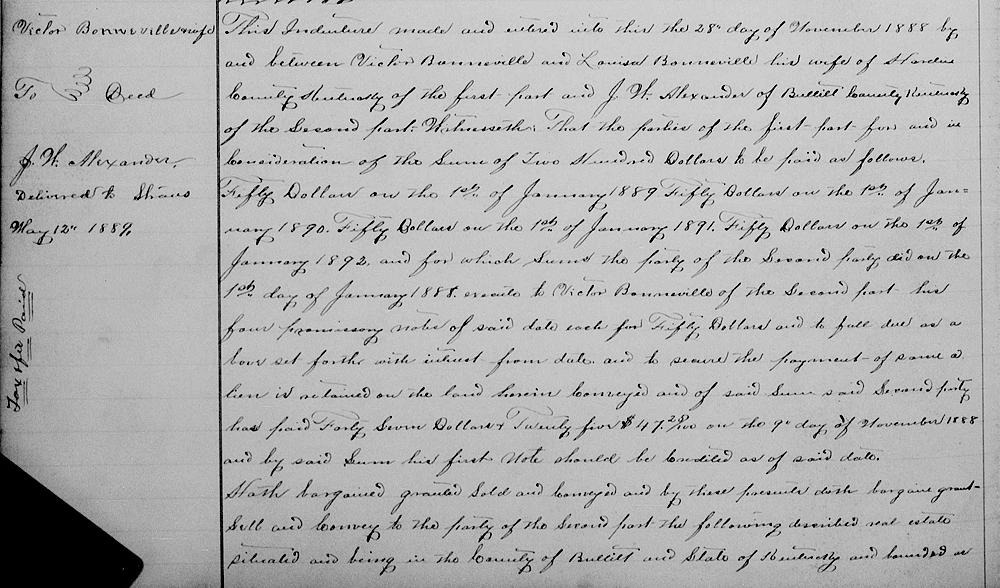 Victor Bonneville & wife
To Deed
J. W. Alexander
Delivered to Straus
May 12" 1889.
Tax & fee Paid
This Indenture made and entered into this the 28" day of November 1888 by
and between Victor Bonneville and Louisa Bonneville his wife of Hardin
County Kentucky of the first part and J. W. Alexander of Bullitt County, Kentucky
of the Second part: Witnesseth: That the parties of the first part for and in
Consideration of the Sum of Two Hundred Dollars to be paid as follows.
Fifty Dollars on the 1st of January 1889 Fifty Dollars on the 1st of Jan=
uary 1890. Fifty Dollars on the 1st of January 1891. Fifty Dollars on the 1st of
January 1892, and for which Sums the party of the Second party did on the
1st day of January 1888. execute to Victor Bonneville of the Second part his
four promissory notes of said date each for Fifty Dollars and to fall due as a
bove set forth with interest from date. and to secure the payment of same a
lien is retained on the land herein Conveyed and of said Sum said Second party
has paid Forty Seven Dollars & Twenty five $47.25/100 on the 9" day of November 1888
and by said Sum his first Note should be Credited as of said date.
Hath bargained granted Sold and Conveyed and by these presents doth bargain grant
Sell and Convey to the party of the Second part the following described real estate
situated and being in the County of Bullitt and State of Kentucky and bounded as